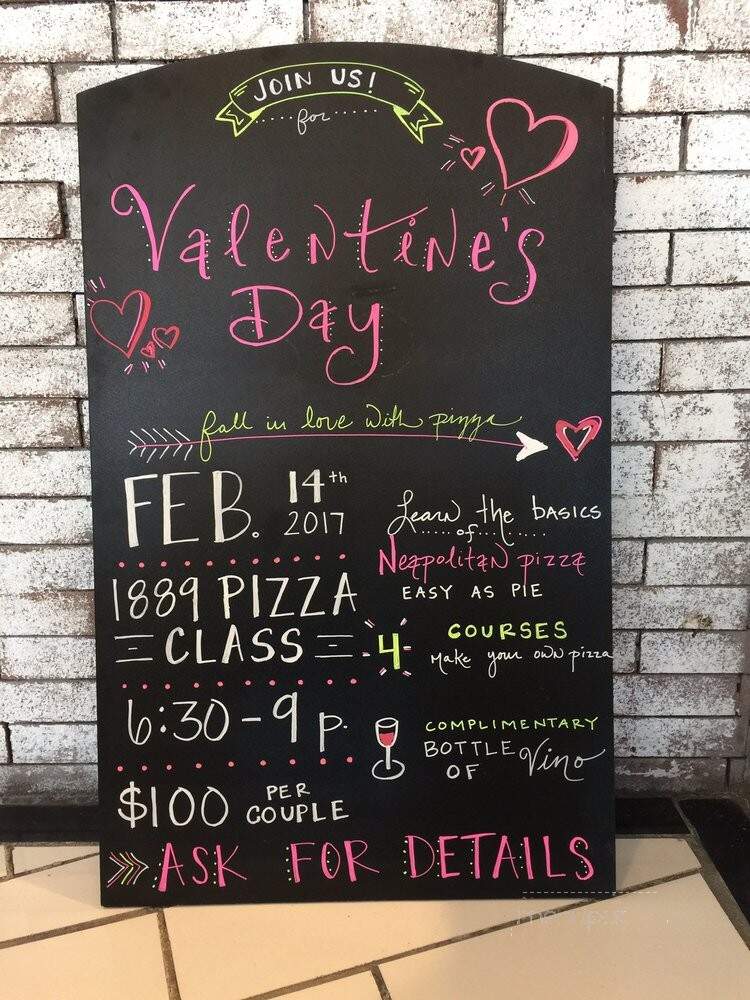 JOIN US!
for
Valentine's
Day
fall in love with pizza
FEB. 14th
2017
1889 PIZZA
CLASS
6:30-9 p.
$100 PER
COUPLE
Learn the BASICS
of
Neapolitan pizza
EASY AS PIE
4 COURSES
Make your own pizza
COMPLIMENTARY
BOTTLE
OF Vino
ASK FOR DETAILS